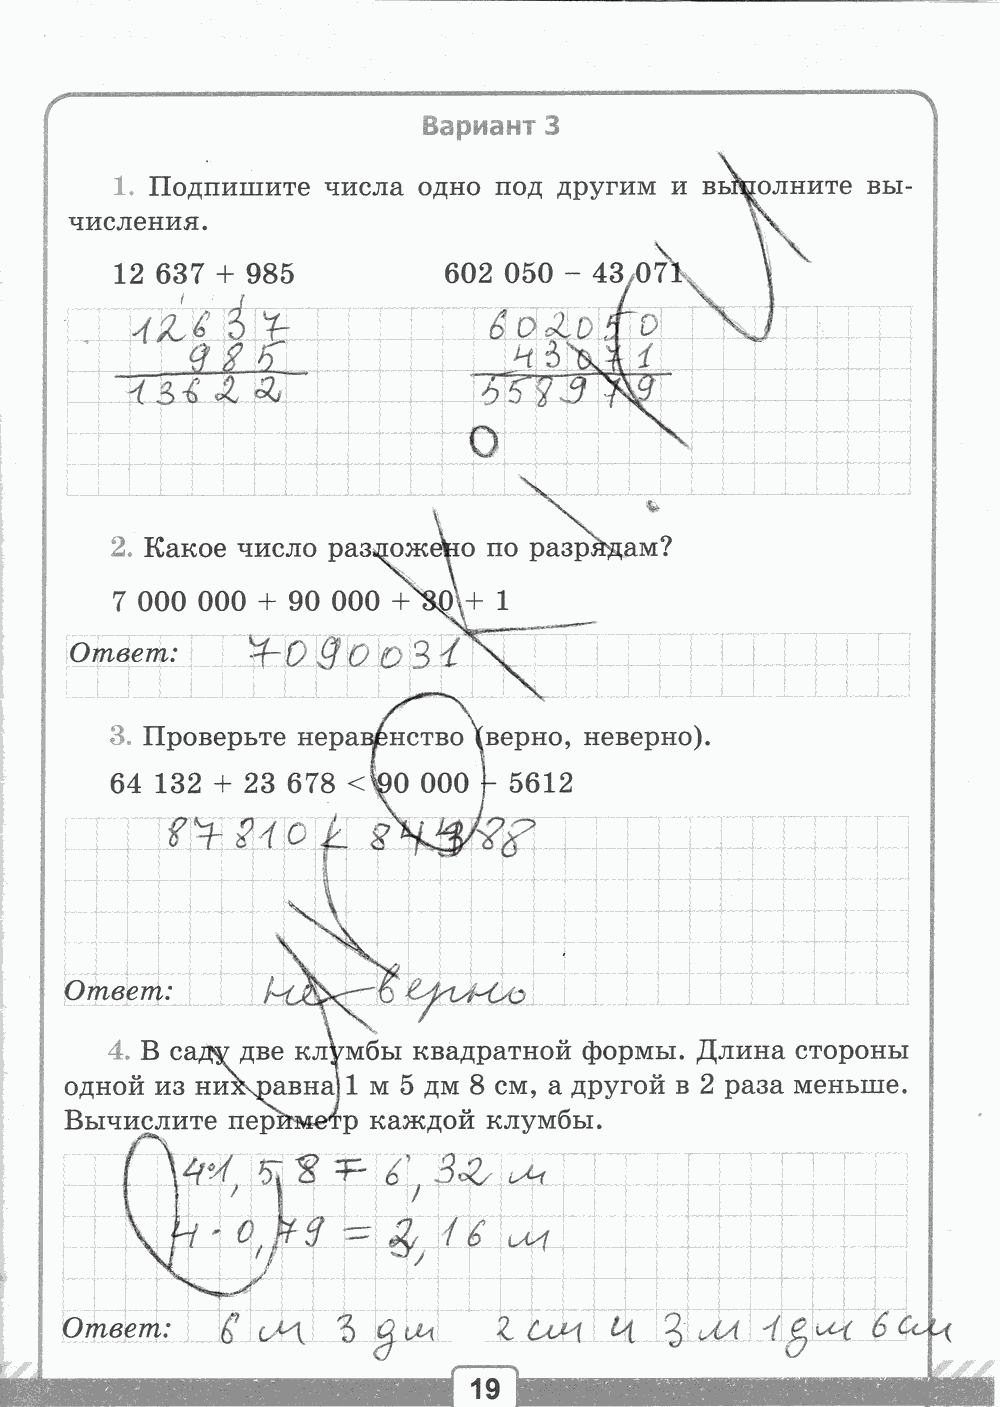 Вариант 3
1. Подпишите числа одно под другим и выполните вы-
числения.
12 637 + 985 602 050 – 43 071
12637 602050
985 43071
13622 558979
2. Какое число разложено по разрядам?
7 000 000 + 90 000 + 30 + 1
Ответ: 7090031
3. Проверьте неравенство (верно, неверно).
64 132 + 23 678 < 90 000 – 5612
87810 < 84388
Ответ: не верно
4. В саду две клумбы квадратной формы. Длина стороны
одной из них равна 1 м 5 дм 8 см, а другой в 2 раза меньше.
Вычислите периметр каждой клумбы.
4·1,58 = 6,32 м
4·0,79 = 3,16 м
Ответ: 6 м 3 дм 2 см и 3 м 1 дм 6 см
19